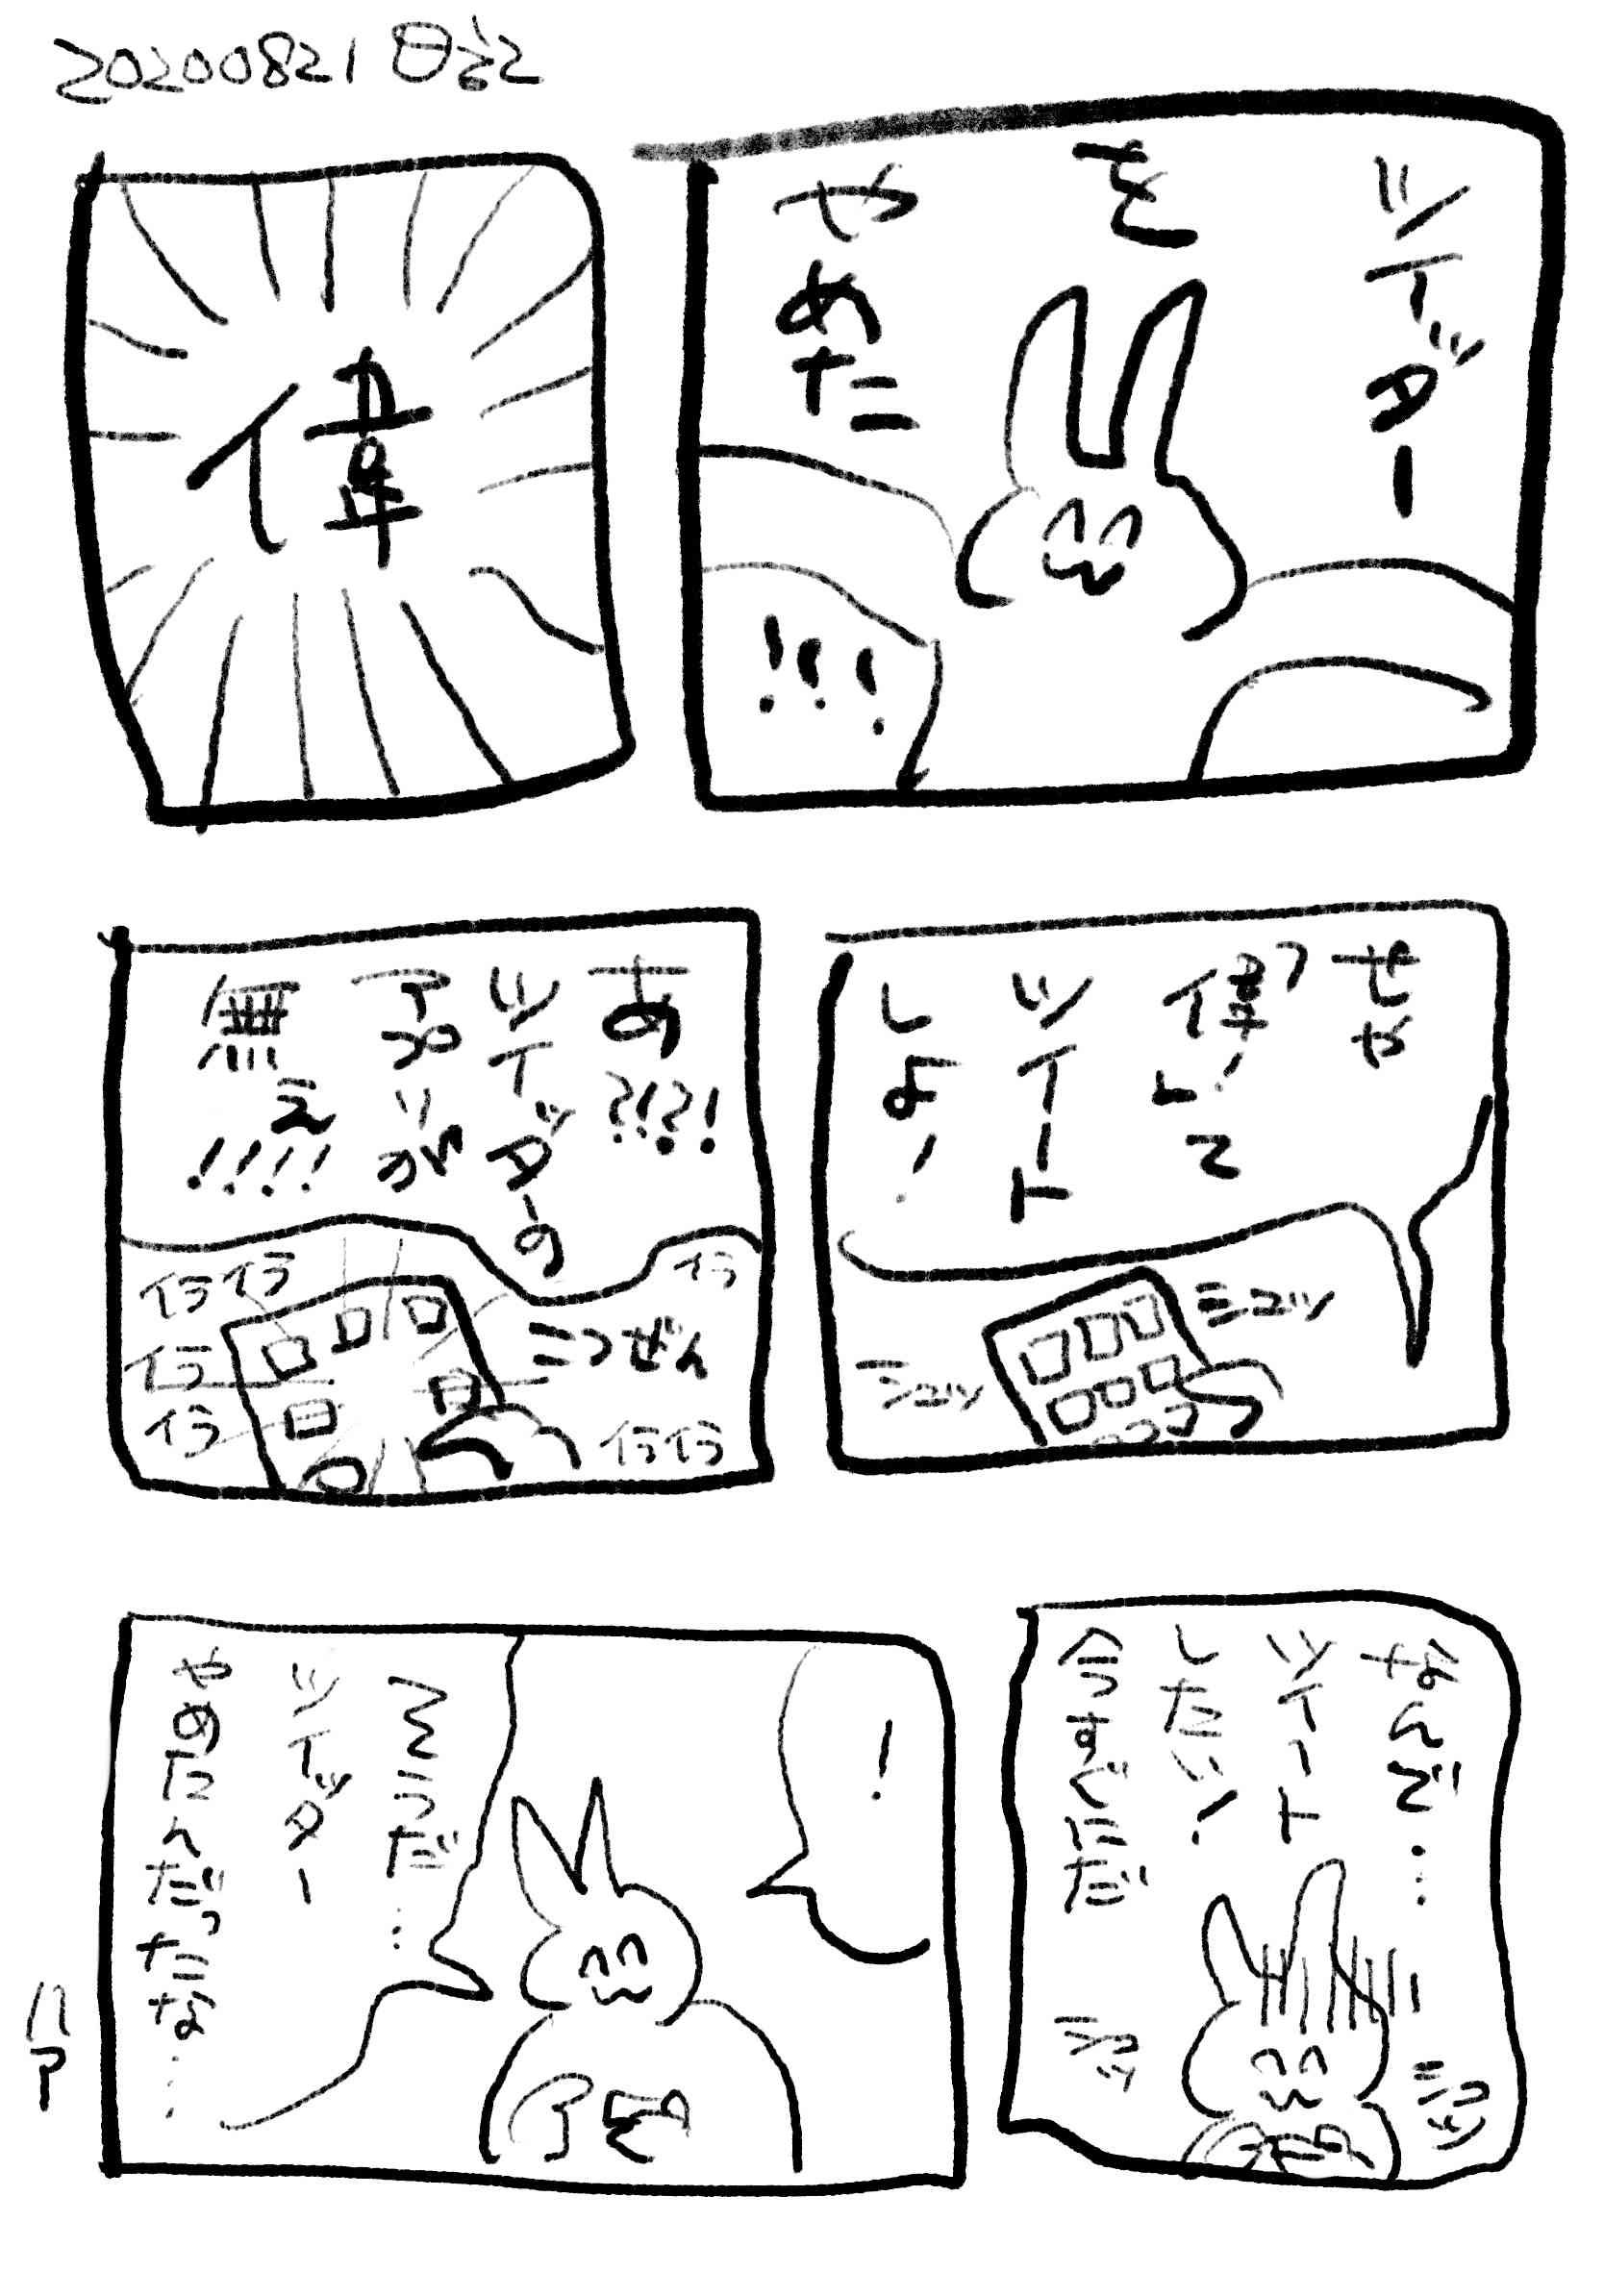 20200821 日記
ツイッター
を
やめた
!!!
偉
せや
偉!って
ツイート
しよ!
シュッ
シュッ
あ?!?!
ツイッターの
アプリが
無え
!!!!
イライラ
イラ
イラ
イラ
こつぜん
イライラ
なんで……
ツイート
したい!
今すぐにだ
シュッ
シュッ
!
そうだ…
ツイッター
やめたんだったな……
ハア